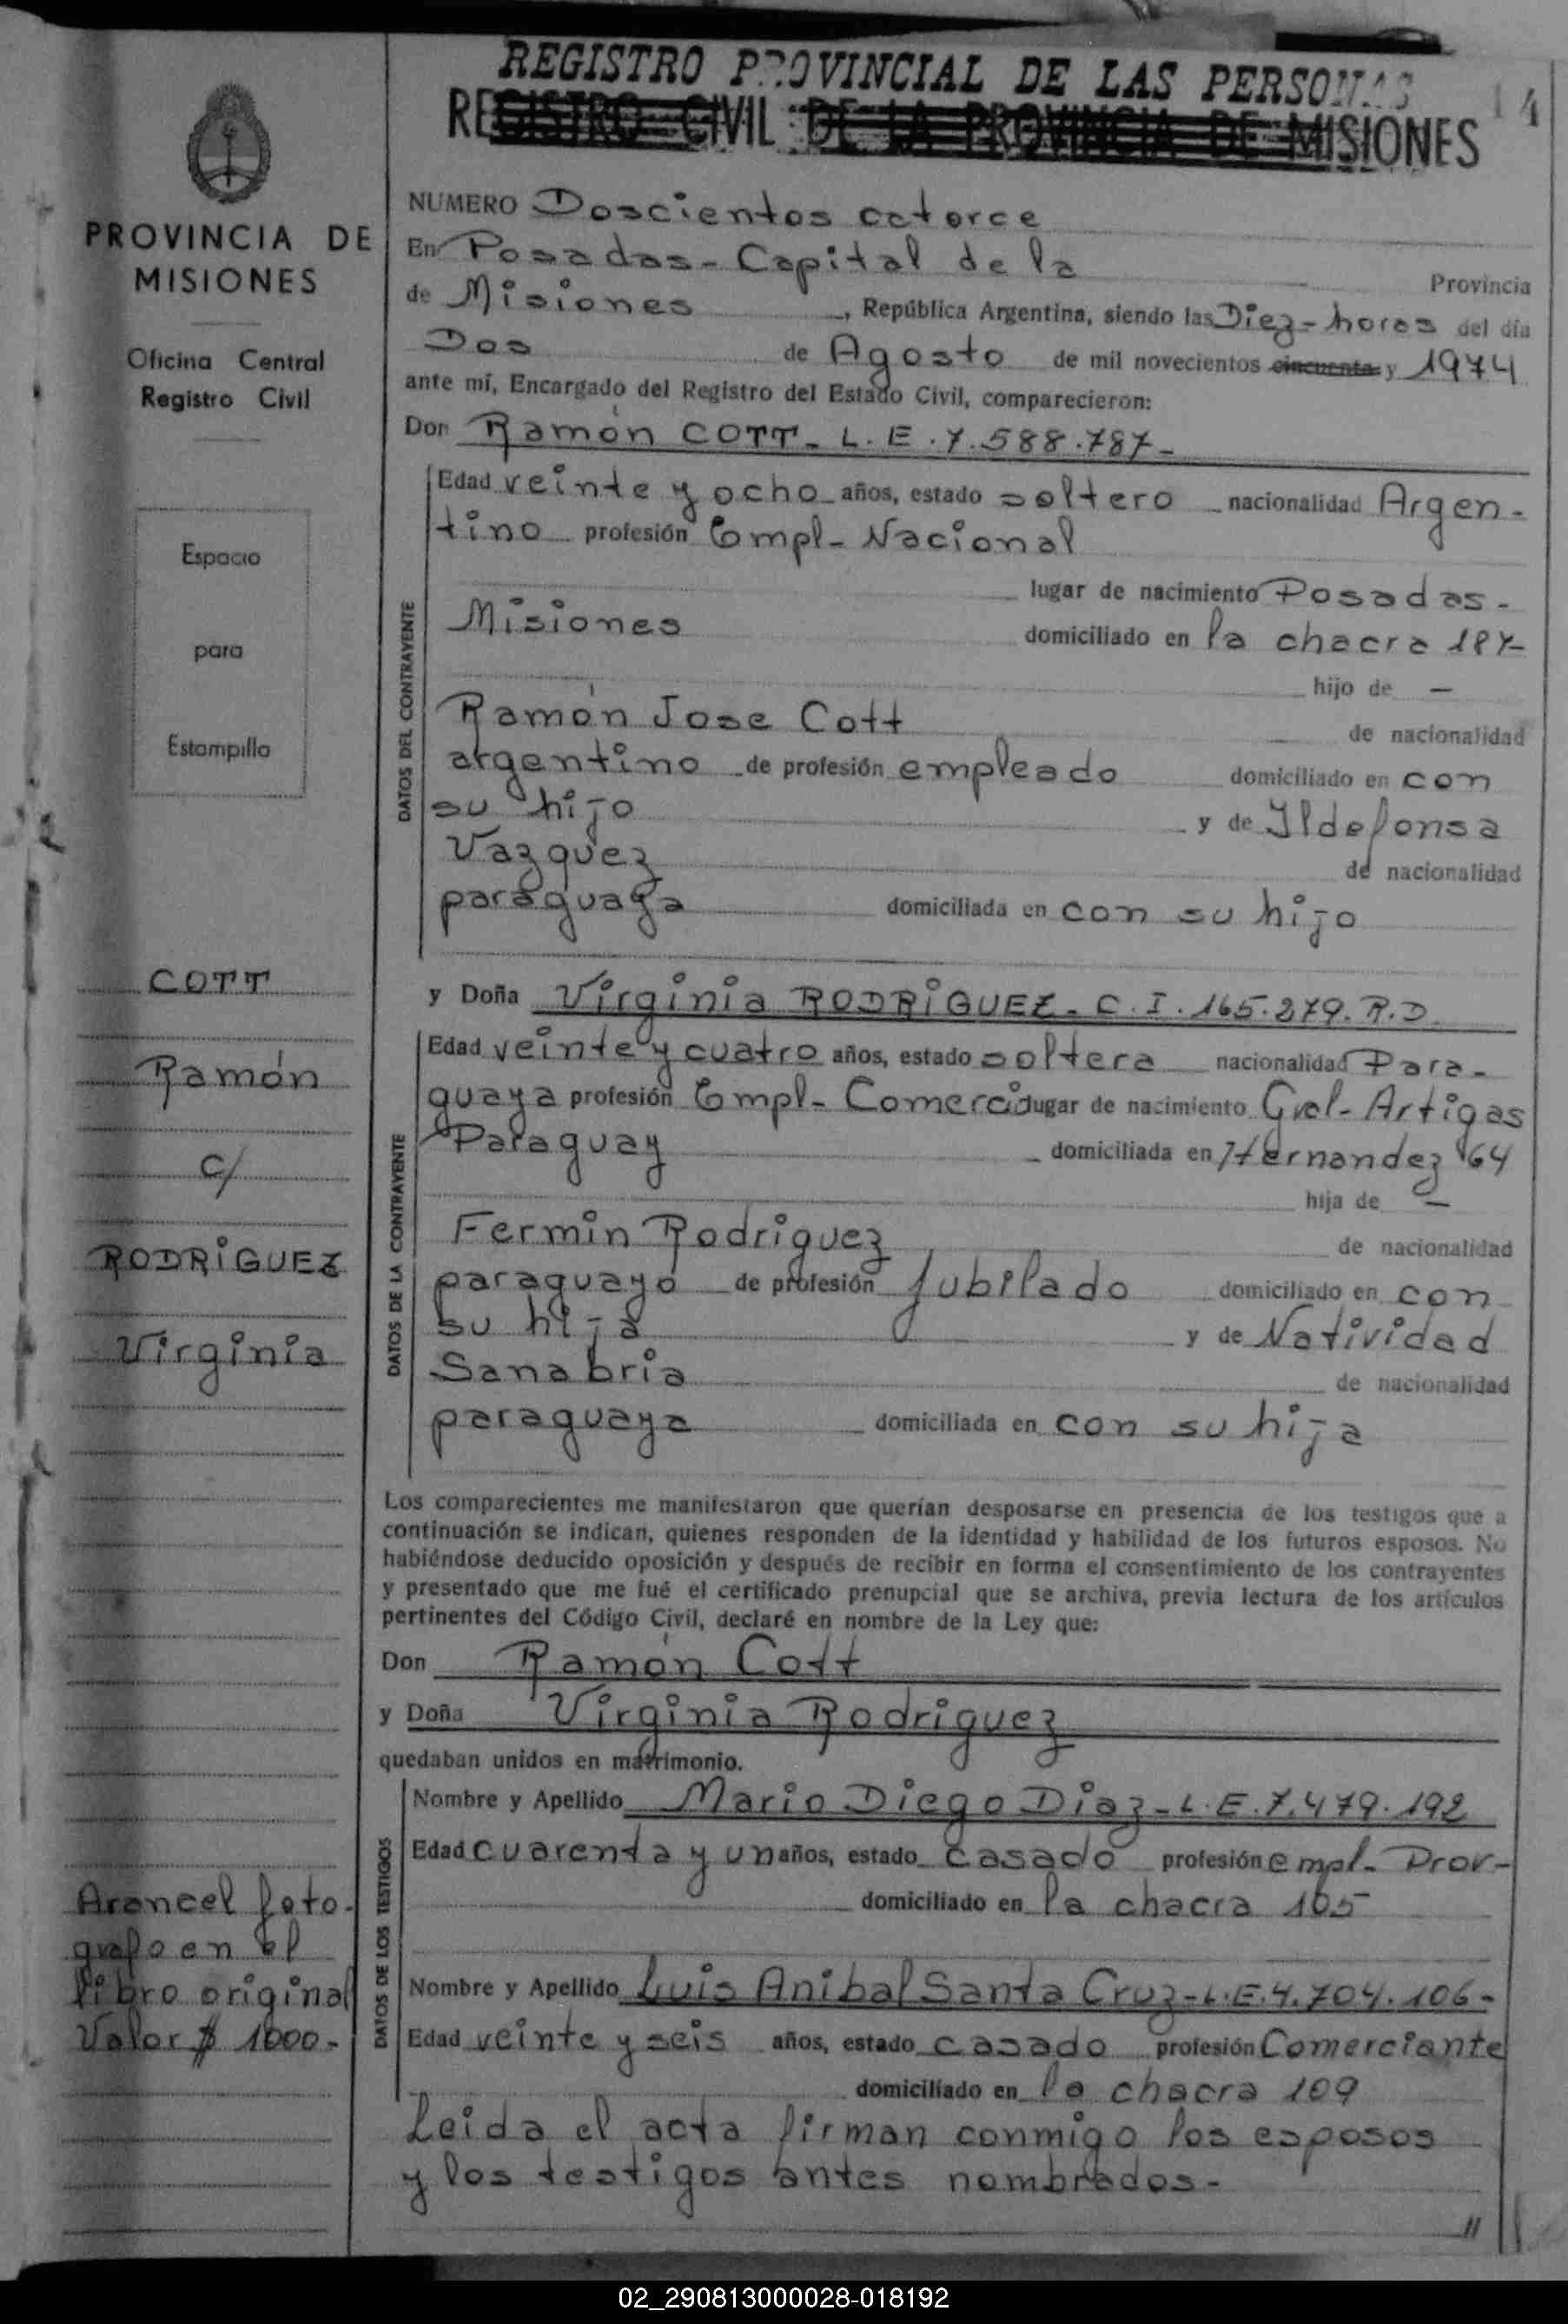 REGISTRO PROVINCIAL DE LAS PERSONAS
REGISTRO CIVIL DE LA PROVINCIA DE MISIONES
14
PROVINCIA DE
MISIONES
Oficina Central
Registro Civil
Espacio
para
Estampilla
COTT
Ramón
C/
RODRiGUEZ
Virginia
Arancel foto-
grafo en el
libro original
Valor $ 1000.-
NUMERO Doscientos catorce
En Posadas - Capital de la Provincia
de Misiones, República Argentina, siendo las Diez - horas del día
Dos de Agosto de mil novecientos cincuenta y 1974
ante mí, Encargado del Registro del Estado Civil, comparecieron:
Don Ramón COTT - L.E. 7.588.787 -
DATOS DEL CONTRAYENTE
Edad veinte y ocho años, estado soltero nacionalidad Argen-
tino profesión Empl - Nacional
lugar de nacimiento Posadas -
Misiones domiciliado en la chacra 187 -
hijo de —
Ramón Jose Cott de nacionalidad
argentino de profesión empleado domiciliado en con
su hijo y de Ildefonsa
Vazquez de nacionalidad
paraguaya domiciliada en con su hijo
y Doña Virginia RODRiGUEZ - C.I. 165.279. R.D.
DATOS DE LA CONTRAYENTE
Edad veinte y cuatro años, estado soltera nacionalidad Para-
guaya profesión Empl - Comercio lugar de nacimiento Gral - Artigas
Paraguay domiciliada en Hernandez 64
hija de —
Fermin Rodriguez de nacionalidad
paraguayo de profesión Jubilado domiciliado en con
su hija y de Natividad
Sanabria de nacionalidad
paraguaya domiciliada en con su hija
Los comparecientes me manifestaron que querían desposarse en presencia de los testigos que a
continuación se indican, quienes responden de la identidad y habilidad de los futuros esposos. No
habiéndose deducido oposición y después de recibir en forma el consentimiento de los contrayentes
y presentado que me fué el certificado prenupcial que se archiva, previa lectura de los artículos
pertinentes del Código Civil, declaré en nombre de la Ley que:
Don Ramón Cott
y Doña Virginia Rodriguez
quedaban unidos en matrimonio.
DATOS DE LOS TESTIGOS
Nombre y Apellido Mario Diego Diaz - L.E. 7.479.192
Edad cuarenta y un años, estado casado profesión empl - Prov -
domiciliado en la chacra 105
Nombre y Apellido Luis Anibal Santa Cruz - L.E. 4.704.106 -
Edad veinte y seis años, estado casado profesión Comerciante
domiciliado en la chacra 109
Leida el acta firman conmigo los esposos
y los testigos antes nombrados -
//
02_290813000028-018192